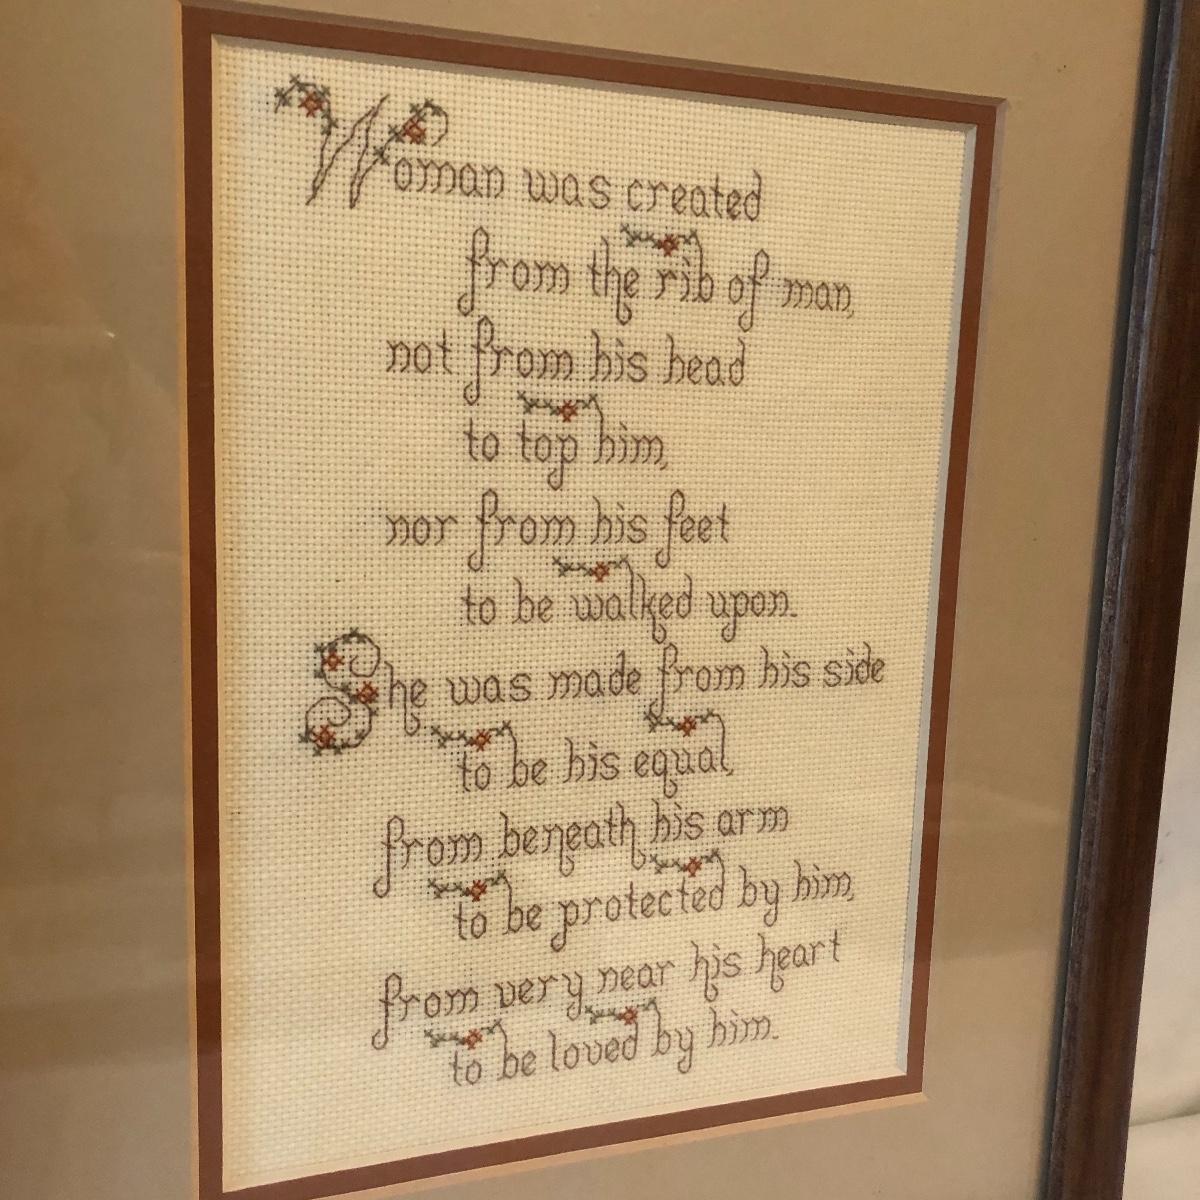 Woman was created
from the rib of man,
not from his head
to top him,
nor from his feet
to be walked upon.
She was made from his side
to be his equal,
from beneath his arm
to be protected by him,
from very near his heart
to be loved by him.